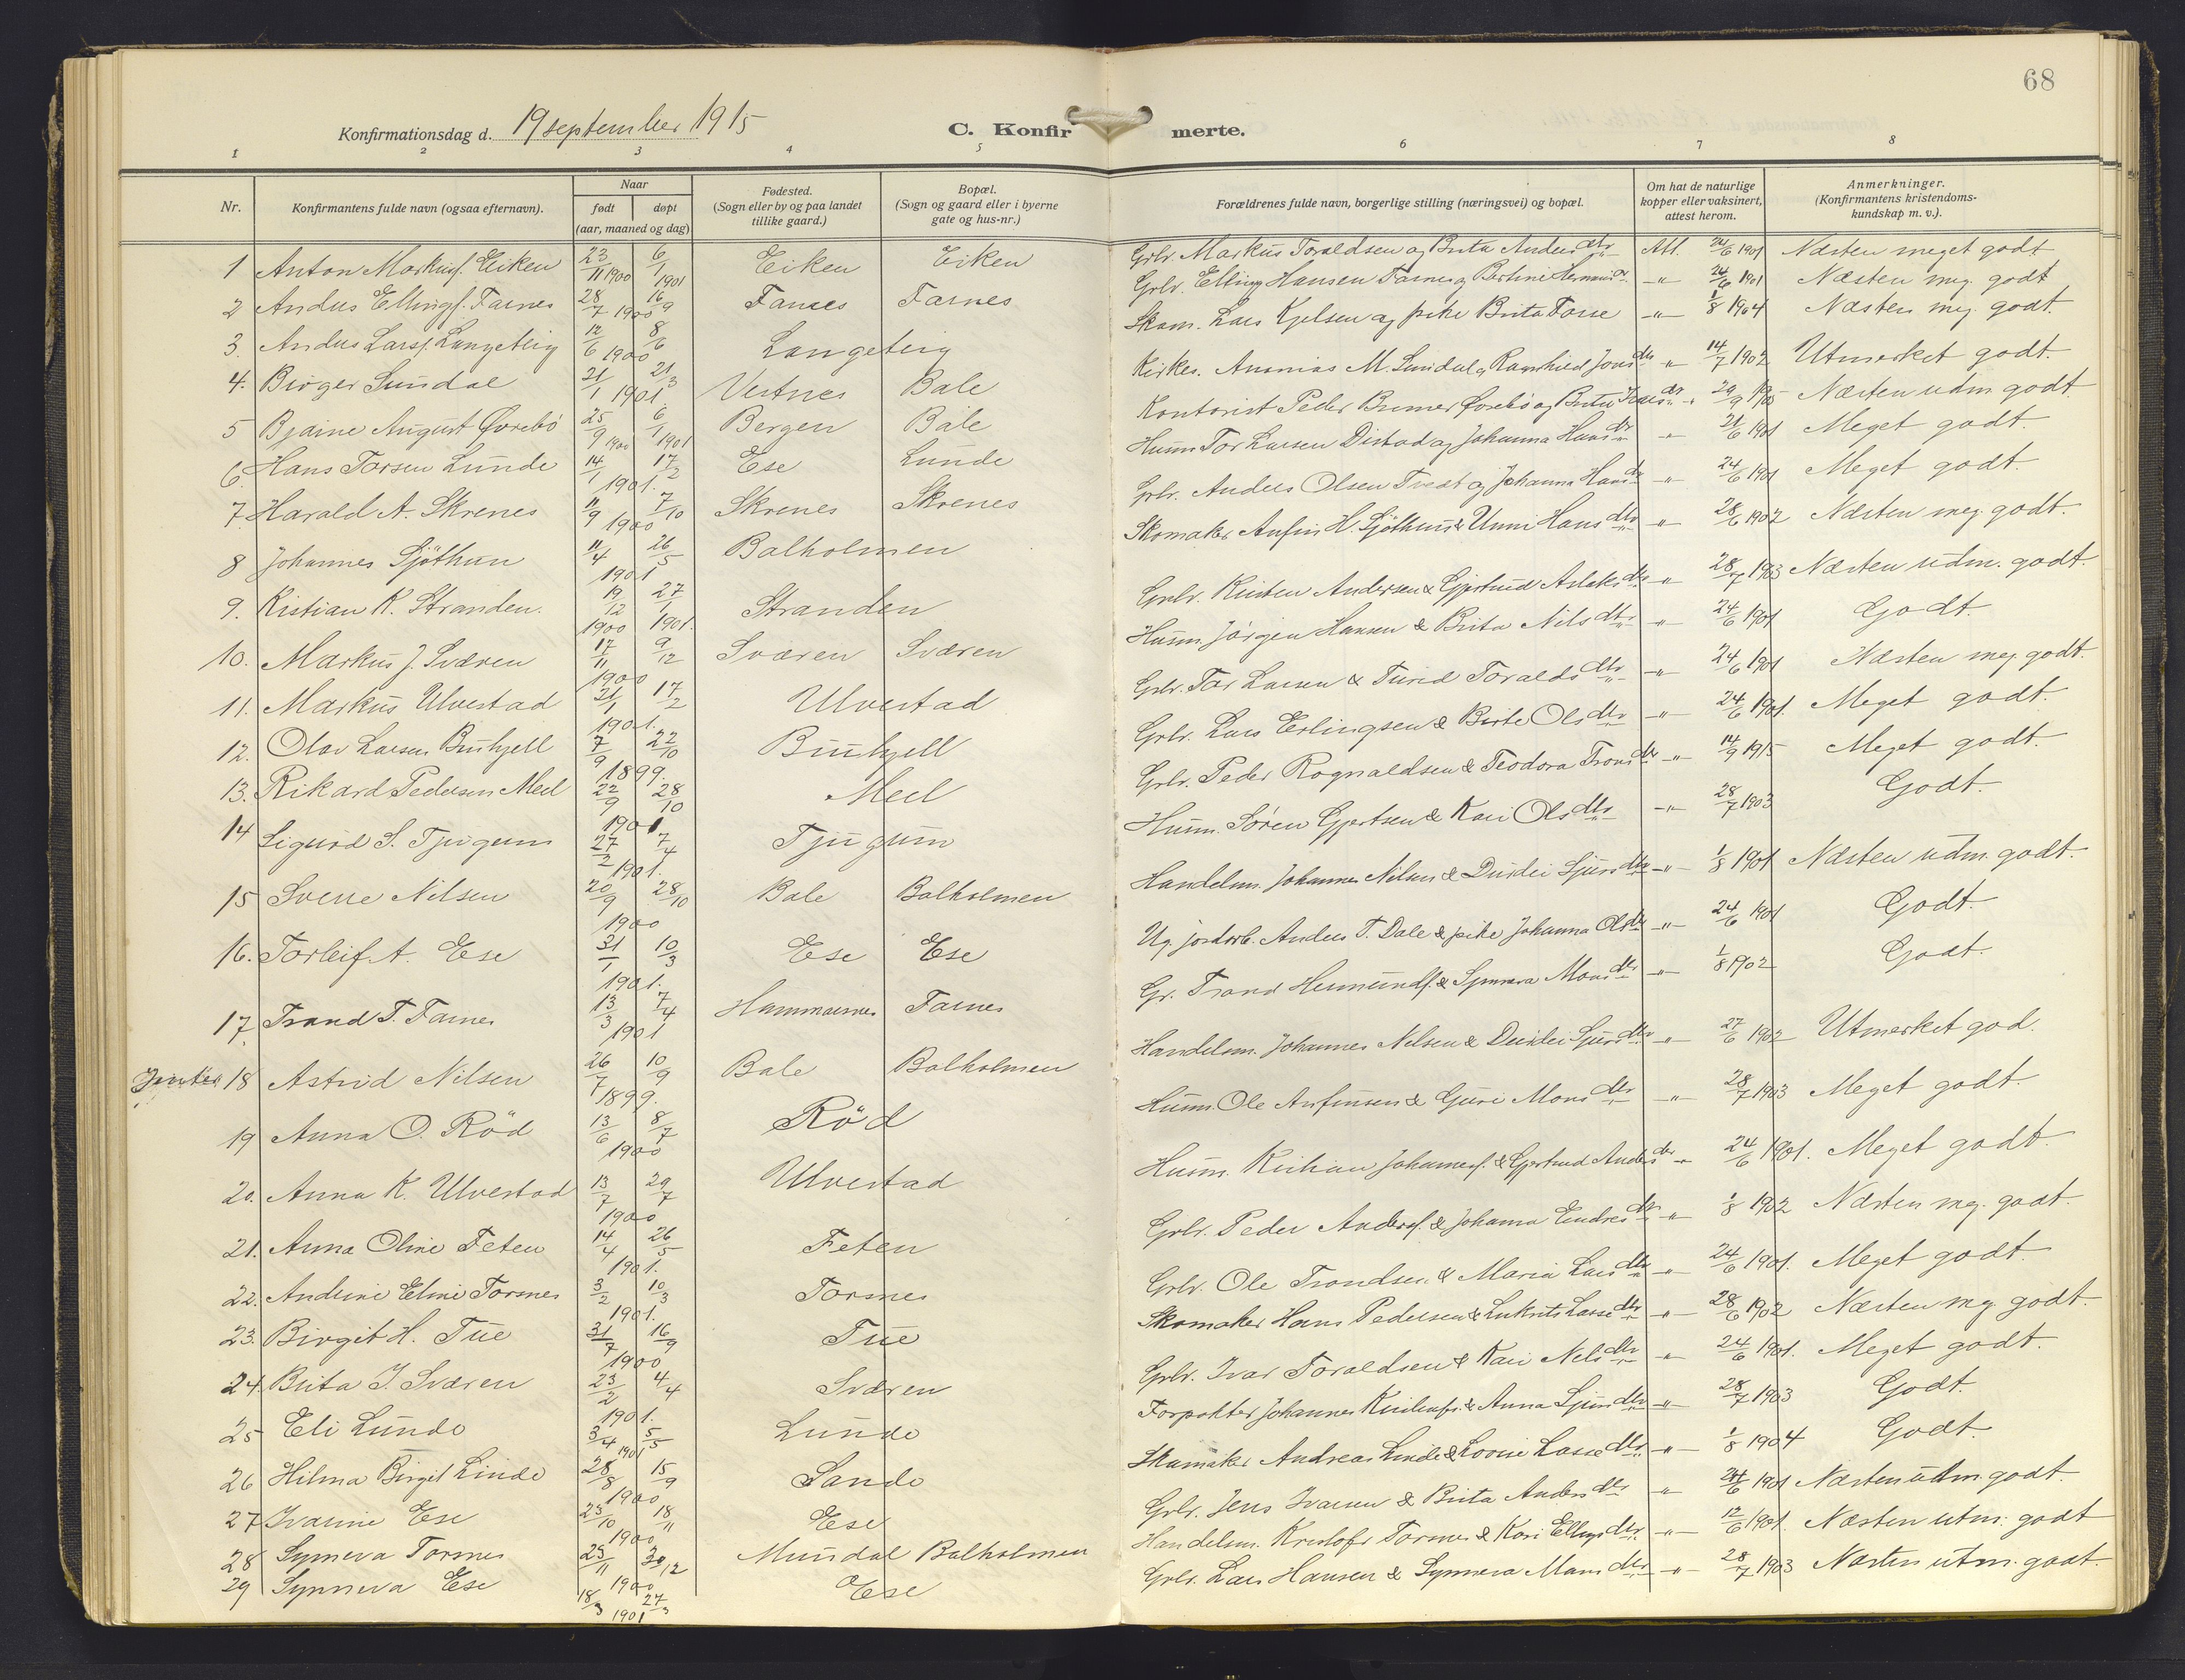 68
Konfirmationsdag d. 19 september 1915
C. Konfirmerte.
1 2 3 4 5 6 7 8
Nr. | Konfirmantens fulde navn (ogsaa efternavn). | Naar født | døpt (aar, maaned og dag) | Fødested. (Sogn eller by og paa landet tillike gaard.) | Bopæl. (Sogn og gaard eller i byerne gate og hus-nr.) | Forældrenes fulde navn, borgerlige stilling (næringsvei) og bopæl. | Om hat de naturlige kopper eller vaksinert, attest herom. | Anmerkninger. (Konfirmantens kristendoms-kundskap m. v.).
1 Anton Markusf. Eiken 23/11 1900 6/1 1901 Eiken Eiken Grbr. Markus Toraldsen og Brita Andersdtr Att. 24/6 1901 Næsten meget godt
2 Anders Ellingf. Farnes 28/7 1900 16/9 Farnes Farnes Grbr. Elling Hansen Farnes og Bertine 24/6 1901 Næsten meg. godt
3. Anders Larsf. Langeteig 12/6 1900 8/6 Langeteig Skom. Lars Kjelsen og pike Brita Farse 1/8 1904 Næsten meg. godt.
4. Birger Sundal 21/1 1901 21/3 Vestnes Bale Kirkes. Ananias M. Sundal og Ragnhild Jonsdtr 14/7 1902 Utmerket godt.
5 Bjarne August Övrebö 25/9 1900 6/1 1901 Bergen Bale Kontorist Peder Bremer Övrebö og Brita 29/9 1905 Næsten udm. godt.
6. Hans Torsen Lunde 14/1 1901. 17/2 Ese Lunde Husm. Tor Larsen Distad og Johanna Hansdtr 21/6 1901 Meget godt.
7. Harald A. Skrenes 11/9 1900 7/10 Skrenes Skrenes Grbr. Anders Olsen Tveit og Johanna Hansdtr 24/6 1901 Meget godt.
8 Johannes Sjöthun 11/4 1901 26/5 Balholmen Skomaker Anfin H. Sjöthun & Unni Hansdtr 28/6 1902 Næsten meg. godt.
9. Kistian K. Stranden. 19/12 1900 27/1 1901. Stranden Grbr. Kristen Andersen & Gjertrud Aslaksdtr 28/7 1903 Næsten udm. godt.
10. Markus J. Sværen 17/11 1900 9/12 Sværen Sværen Husm. Jörgen Hansen & Brita Nilsdtr 24/6 1901 Godt.
11. Markus Ulvestad 21/1 1901. 17/2 Ulvestad Grbr. Tor Larsen & Turid Toraldsdtr 24/6 1901 Næsten meg godt.
12. Olav Larsen Buhjell 7/9 1899. 22/10 Buhjell Grbr. Lars Erlingsen & Birte Olsdtr 24/6 1901. Meget godt.
13. Rikard Pedersen Meel 22/9 1901 28/10 Meel Grbr. Peder Rognaldsen & Teodora Tronsdtr 14/9 1915 Meget godt.
14 Sigurd S. Tjugum 27/2 1901. 7/4 Tjugum Husm. Sören Gjertsen & Kari Olsdtr 28/7 1903 Godt.
15 Sverre Nilsen 20/9 1900 28/10 Bale Balholmen Handelsm. Johannes Nilsen & Durdei Sjursdtr 1/8 1901 Næsten udm. godt.
16. Torleif A. Ese 31/1 1901. 10/3 Ese Ese Ug. jordarb. Anders T. Dale & pike Johanna Olsdtr 24/6 1901 Godt.
17. Trond T. Farnes 13/3 1901 7/4 Hammarnes Farnes Gr. Trond Hermundf. & Synneva Monsdtr 1/8 1902 Godt.
Jenter 18 Astrid Nilsen 26/7 1899. 10/9 Bale Balholmen Handelsm. Johannes Nilsen & Durdei Sjursdtr 27/6 1902 Utmerket god.
19 Anna O. Röd 13/6 1900 8/7 Röd Husm. Ole Anfinsen & Guri Monsdtr 28/7 1903 Meget godt.
20. Anna K. Ulvestad 13/7 1900 29/7 Ulvestad Husm. Kristian Johannesf. & Gjertrud Andersdtr 24/6 1901. Meget godt.
21. Anna Oline Feten 14/4 1901. 26/5 Feten Grbr. Peder Andersf. & Johanna Endresdtr 1/8 1902 Næsten meg. godt.
22. Andrine Eline Torsnes 3/2 1901. 10/3 Torsnes Grbr. Ole Trondsen & Maria Larsdtr 24/6 1901. Meget godt.
23. Birgit H. Tue 31/7 1900 16/9 Tue Skomaker Hans Pedersen & Lukrits Lassedtr 28/6 1902 Næsten meg. godt.
24. Brita I. Sværen 23/2 1901. 4/4 Sværen Grbr. Ivar Toraldsen & Kari Nelsdtr 24/6 1901. Meget godt.
25 Eli Lunde 3/4 1901 5/5 Lunde Forpakter Johannes & Anna Sjursdtr 28/7 1903 Godt.
26 Hilma Birgit Linde 28/8 1900 15/9 Sande Skomaker Andreas Linde & Lovise Lassedtr 1/8 1904 Godt.
27 Ivarine Ese 23/10 1900 18/11 Ese Grbr. Jens Ivarsen & Brita Andersdtr 24/6 1901 Næsten udm. godt.
28 Synneva Torsnes 25/11 1900 30/12 Mundal Balholmen Handelsm. Kristofer Torsnes & Kari Ellingsdtr. 12/6 1901. Næsten utm. godt
29 Synneva Ese 18/3 1901 27/3 Ese Grbr. Lars Hansen & Synneva Monsdtr 28/7 1903 Næsten utm. godt.